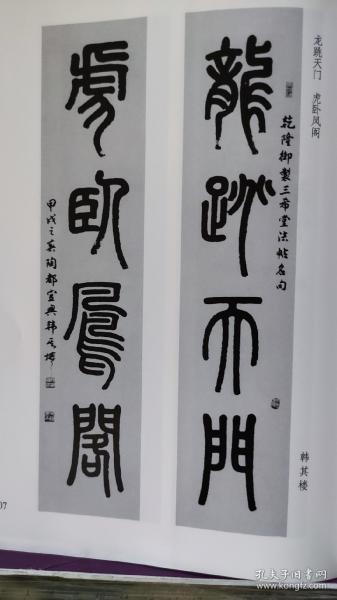 龙跳天门 虎卧凤阁
龍跳天門
乾隆御製三希堂法帖名句
虎臥鳳閣
甲戌之春陶都宜興韩其楼
韩其楼
07
孔夫子旧书网
www.kongfz.com